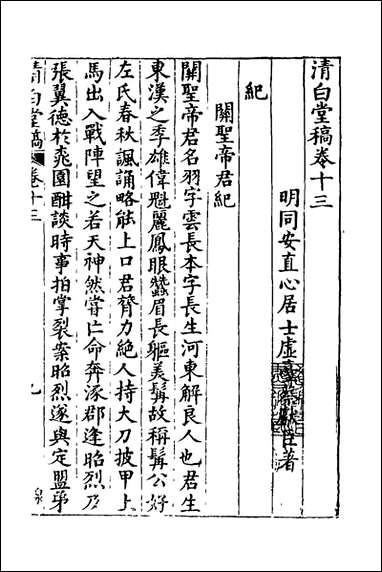 清白堂稿卷十三
明同安直心居士虛臺蔡獻臣著
紀
關聖帝君紀
關聖帝君名羽字雲長本字長生河東解良人也君生
東漢之季雄偉魁麗鳳眼蠶眉長軀美髯故稱髯公好
左氏春秋諷誦略能上口君膂力絕人持大刀披甲上
馬出入戰陣望之若天神然嘗亡命奔涿郡逢昭烈及
張翼德於桃園酣談時事拍掌裂案昭烈遂與定盟弟
清白堂稿 卷十三